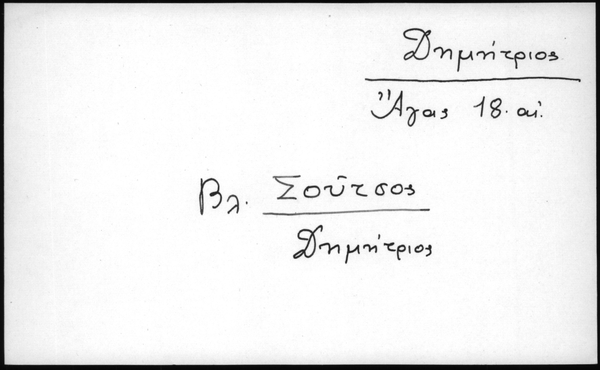 Δημήτριος
Ἄγας 18. αἰ.
Βλ. Σοῦτσος
Δημήτριος